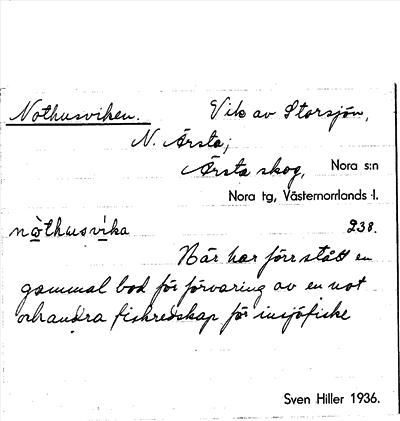 Nothusviken. Vik av Storsjön,
N. Ärsta,
Ärsta skog, Nora s:n
Nora tg, Västernorrlands l.
nòthusvika 238.
Här har förr stått en
gammal bod för förvaring av en not
och andra fiskredskap för insjöfiske
Sven Hiller 1936.